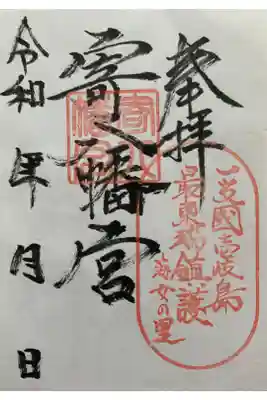 奉拝
寄八幡宮
令和 年 月 日
一支國壱岐島
最東端鎮護
海女の里